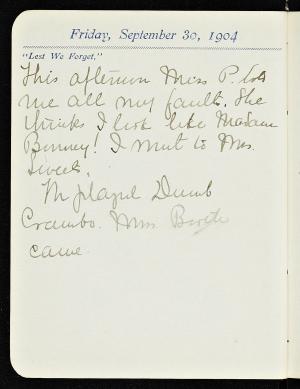 Friday, September 30, 1904
"Lest We Forget."
This afternoon Miss P. told
me all my faults. She
thinks I look like Madam
Binney! I went to Mrs.
Sweets.
We played Dumb
Crambo. Miss
came